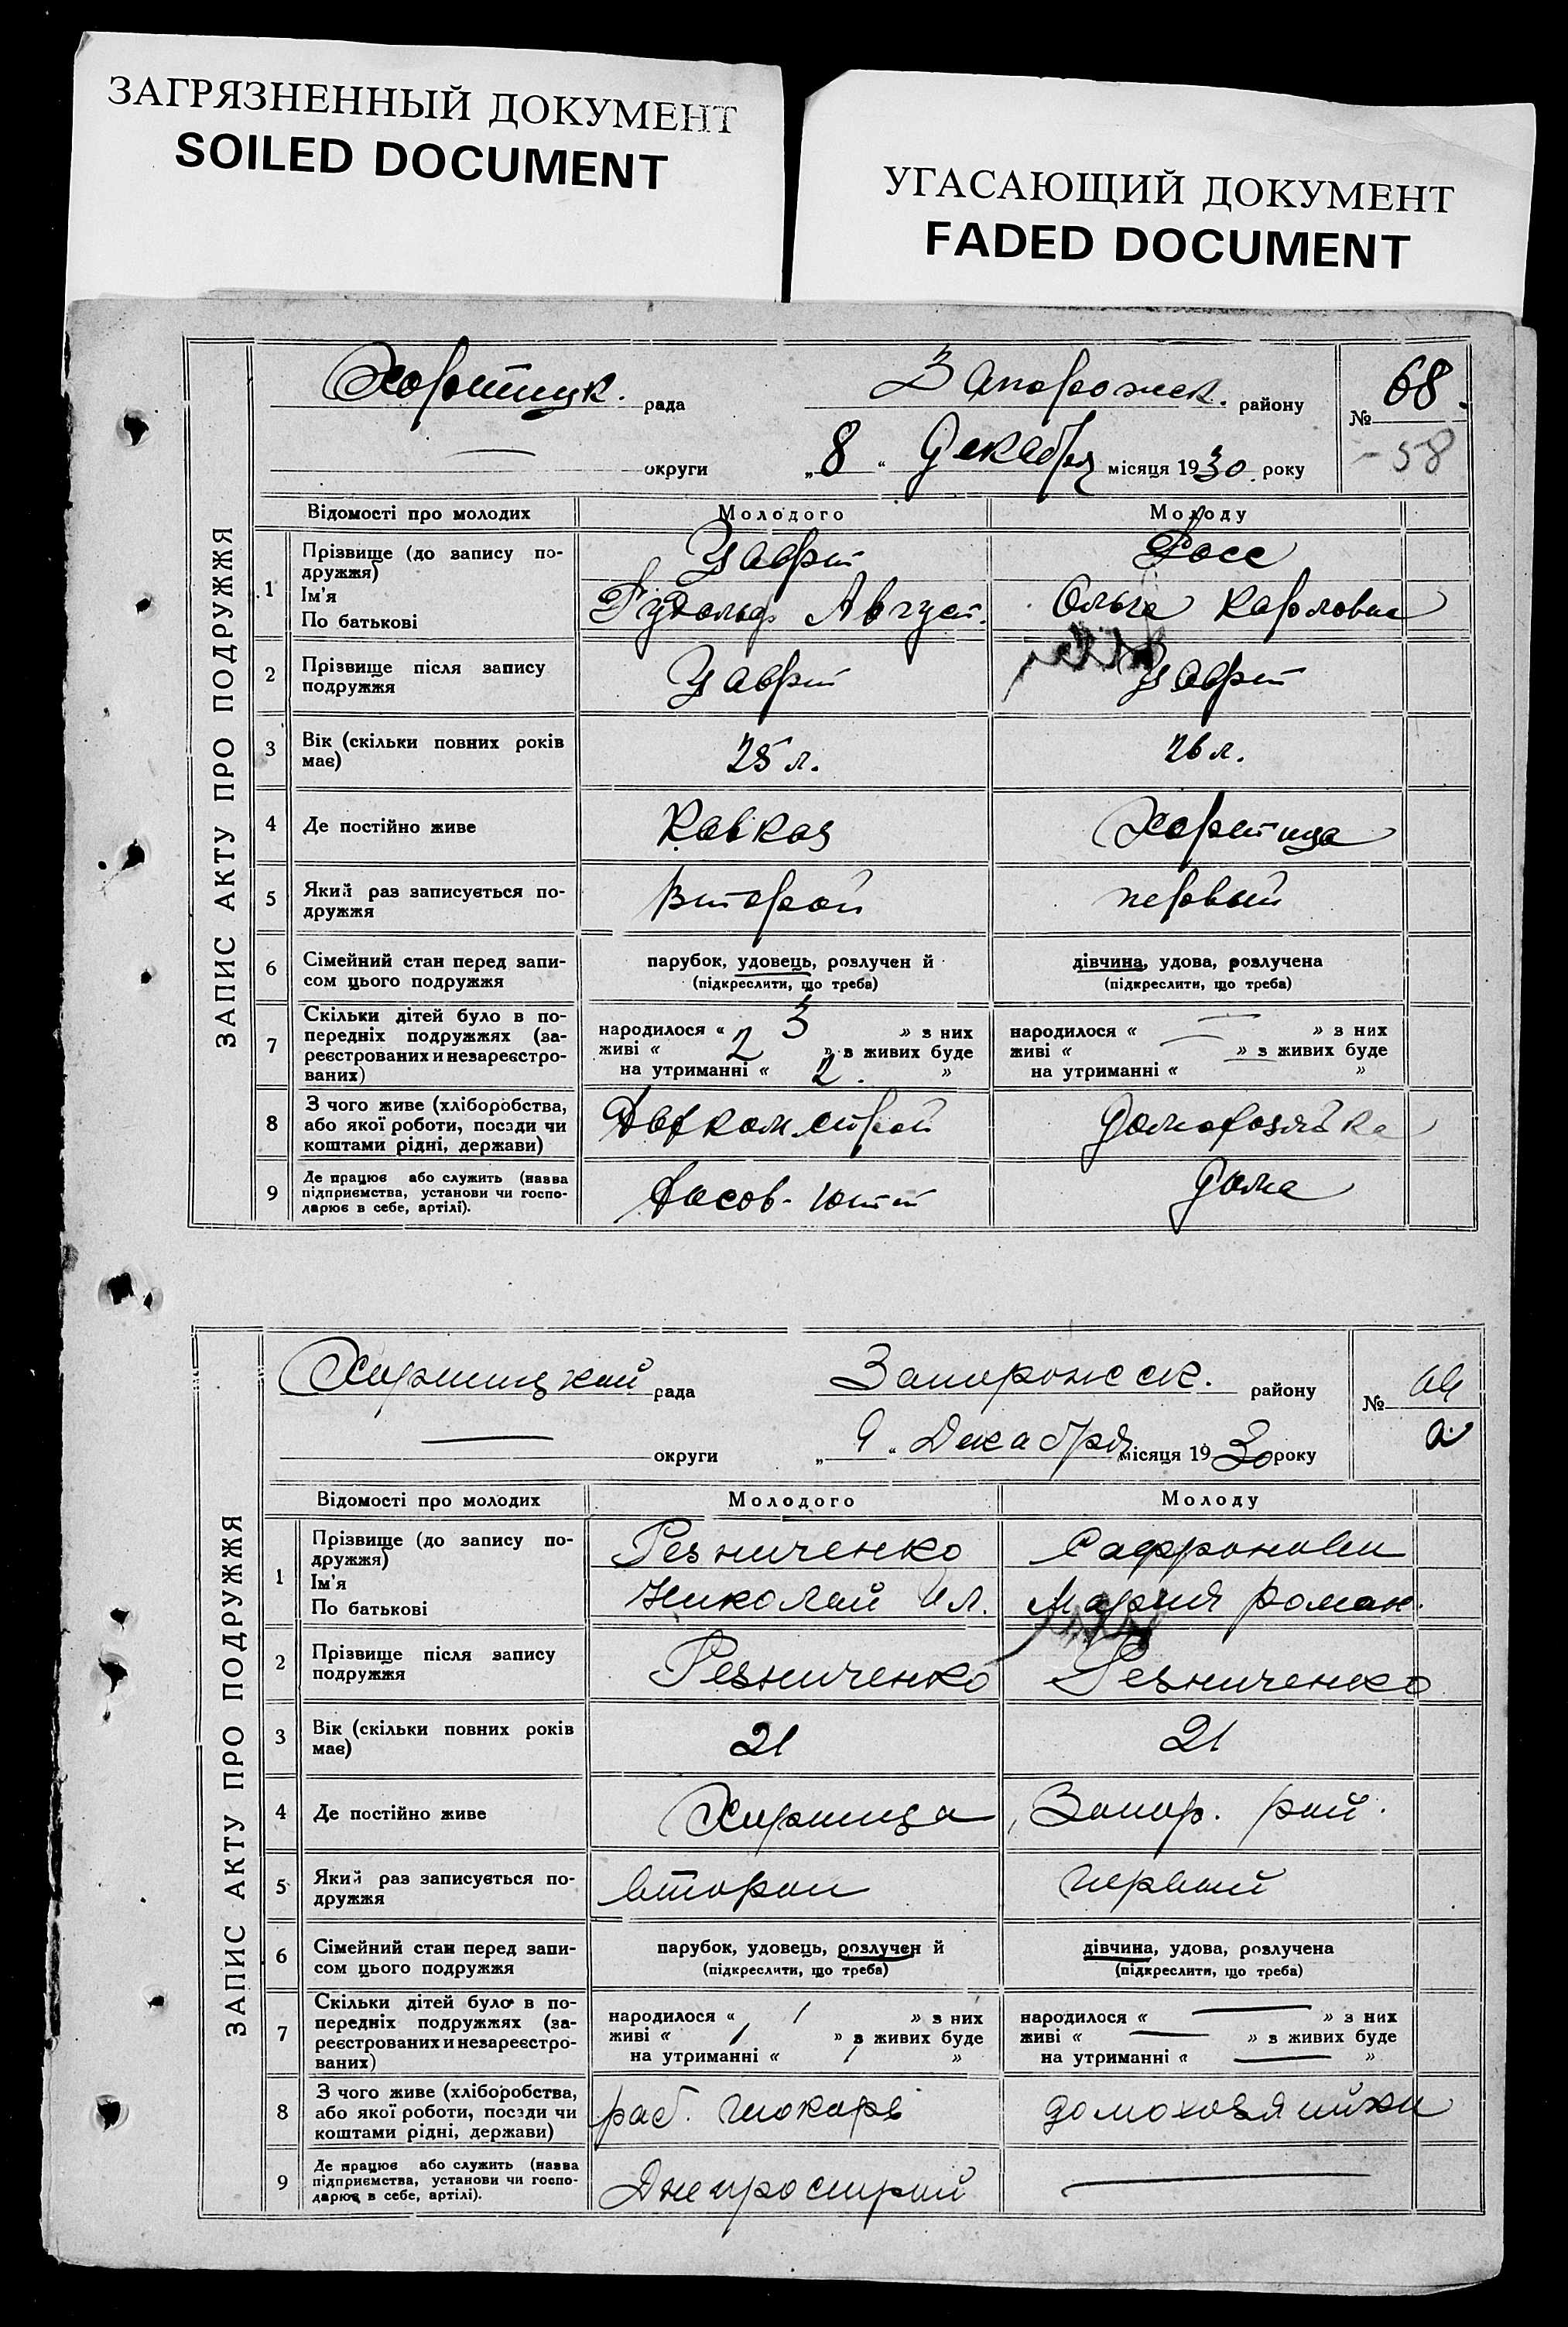 ЗАГРЯЗНЕННЫЙ ДОКУМЕНТ
SOILED DOCUMENT
УГАСАЮЩИЙ ДОКУМЕНТ
FADED DOCUMENT
ЗАПИС АКТУ ПРО ПОДРУЖЖЯ
Хортицк. рада Запорожск. району № 68.
— округи „8“ Декабря місяця 1930. року -58
Відомості про молодих Молодого Молоду
1 Прізвище (до запису по-
дружжя)
Ім'я
По батькові
Росс
Рудольф Август. Ольга Карловна
2 Прізвище після запису
подружжя
3 Вік (скільки повних років
має)
25 л. 26 л.
4 Де постійно живе Кавказ Хортица
5 Який раз записується по-
дружжя
второй первый
6 Сімейний стан перед запи-
сом цього подружжя
парубок, удовець, розлучен й
(підкреслити, що треба)
дівчина, удова, розлучена
(підкреслити, що треба)
7 Скільки дітей було в по-
передніх подружжях (за-
реєстрованих и незареєстро-
ваних)
народилося « 3 » з них
живі « 2 » з живих буде
на утриманні « 2. »
народилося « — » з них
живі « — » з живих буде
на утриманні « »
8 З чого живе (хліборобства,
або якої роботи, посади чи
коштами рідні, держави)
домохозяйка
9 Де працює або служить (назва
підприємства, установи чи госпо-
дарює в себе, артілі).
дома
ЗАПИС АКТУ ПРО ПОДРУЖЖЯ
Хортицкой рада Запорожск. району №
— округи „9“ Декабря місяця 1930 року
Відомості про молодих Молодого Молоду
1 Прізвище (до запису по-
дружжя)
Ім'я
По батькові
Резниченко Сафронова
Николай Ил. Мария Роман.
2 Прізвище після запису
подружжя
Резниченко Резниченко
3 Вік (скільки повних років
має)
21 21
4 Де постійно живе Хортица Запор. рай.
5 Який раз записується по-
дружжя
второй первый
6 Сімейний стан перед запи-
сом цього подружжя
парубок, удовець, розлучен й
(підкреслити, що треба)
дівчина, удова, розлучена
(підкреслити, що треба)
7 Скільки дітей було в по-
передніх подружжях (за-
реєстрованих и незареєстро-
ваних)
народилося « 1 » з них
живі « 1 » з живих буде
на утриманні « 1 »
народилося « — » з них
живі « — » з живих буде
на утриманні « — »
8 З чого живе (хліборобства,
або якої роботи, посади чи
коштами рідні, держави)
раб. токарь домохозяйка
9 Де працює або служить (назва
підприємства, установи чи госпо-
дарює в себе, артілі).
Днепрострой —